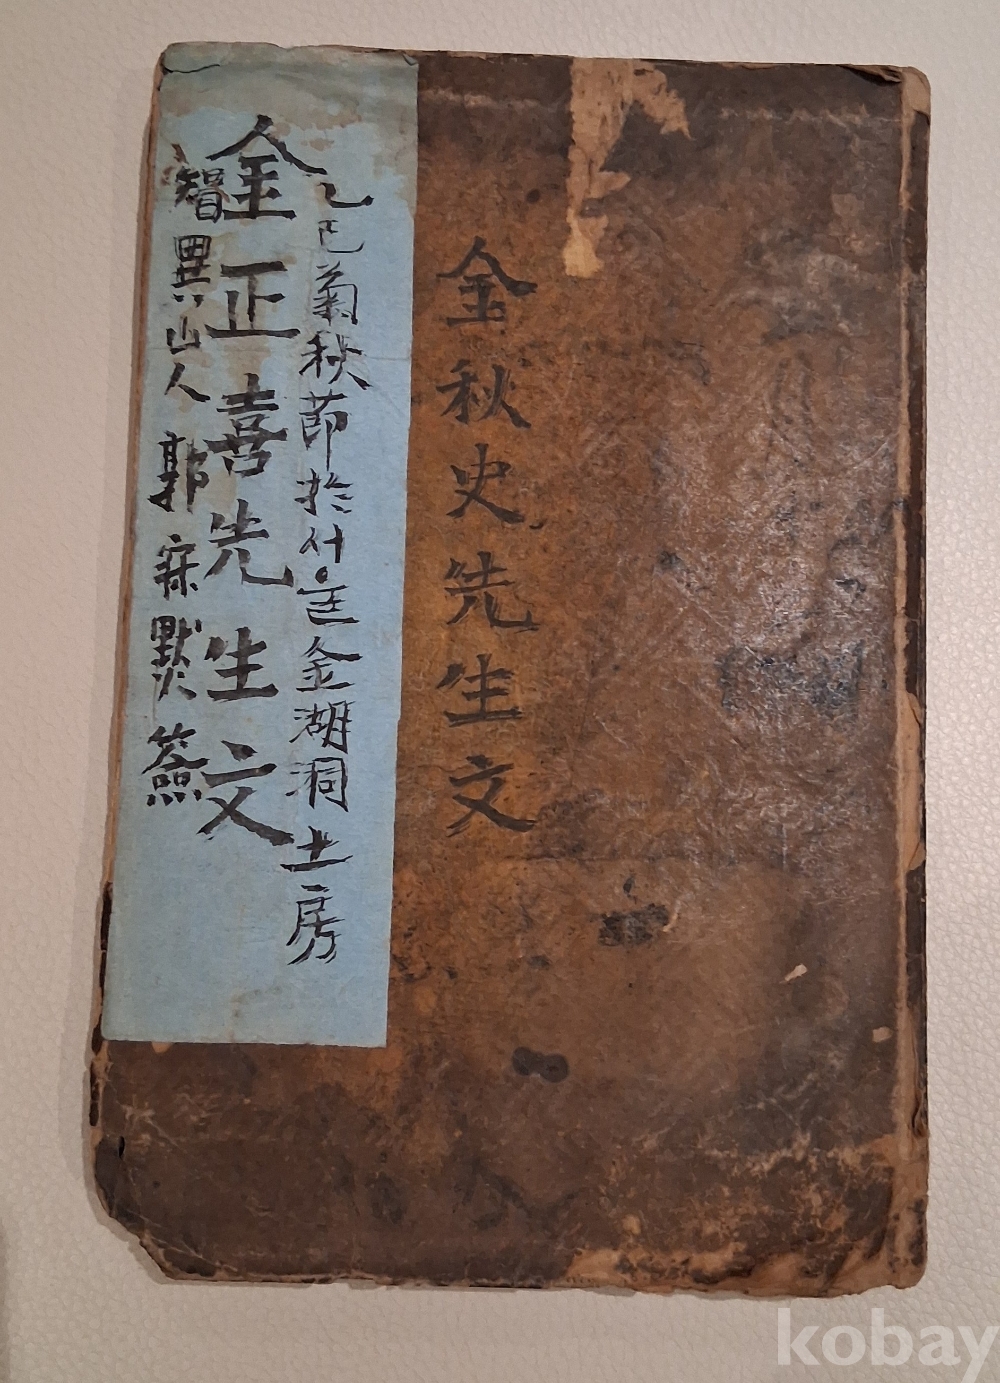 金秋史先生文
乙巳菊秋節於什匡金湖洞土房
金正喜先生文
智異山人 郭寐默簽
kobay